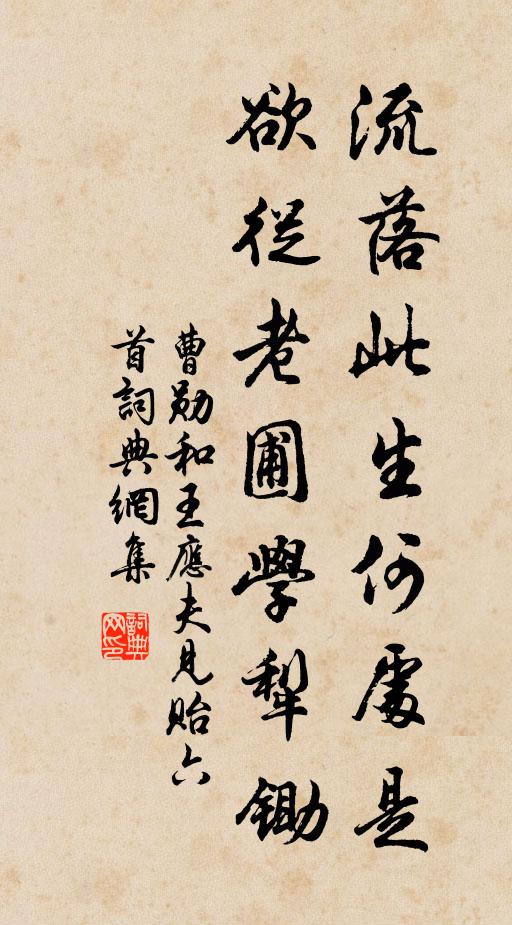 流落此生何處是
欲從老圃學犁鋤
曹勛和王應夫見貽六
首詞典網集
詞典网印